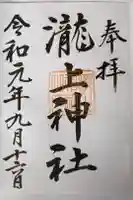 奉拝
瀧上神社
令和元年九月十六日